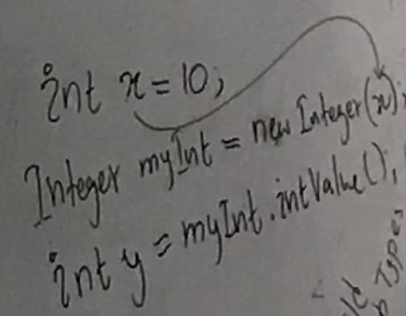 int x = 10;
Integer myInt = new Integer(x);
int y = myInt.intValue();